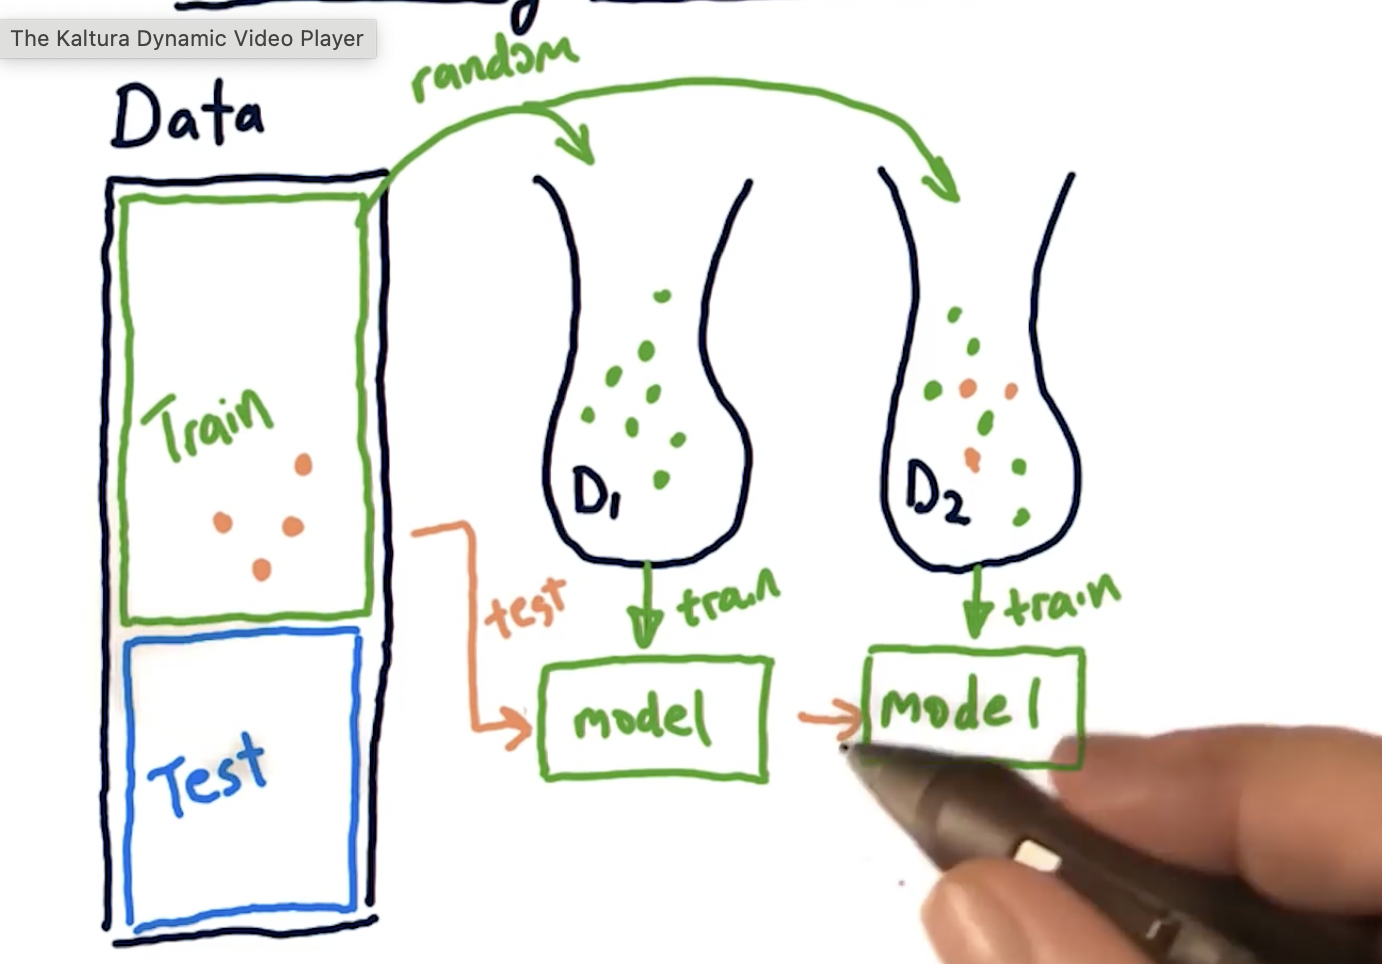 The Kaltura Dynamic Video Player
random
Data
Train
D1
D2
test
train
train
model
model
Test